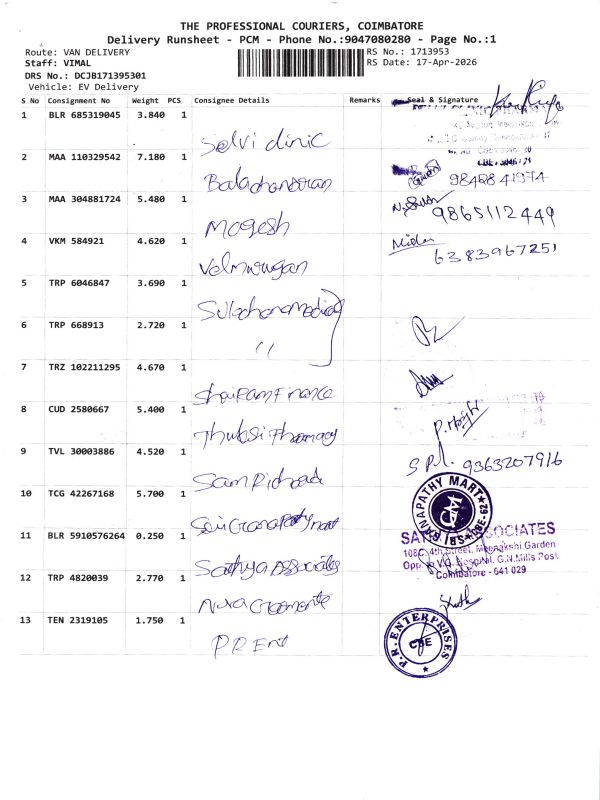 THE PROFESSIONAL COURIERS, COIMBATORE
Delivery Runsheet - PCM - Phone No.:9047080280 - Page No.:1
Route: VAN DELIVERY
Staff: VIMAL
DRS No.: DCJB171395301
Vehicle: EV Delivery
RS No.: 1713953
RS Date: 17-Apr-2026
S No Consignment No Weight PCS Consignee Details Remarks Seal & Signature
1 BLR 685319045 3.840 1
Selvi clinic
2 MAA 110329542 7.180 1
Balachandran 9848841974
3 MAA 304881724 5.480 1
Mogesh 9865112449
4 VKM 584921 4.620 1
Velmurugan 6383967251
5 TRP 6046847 3.690 1
6 TRP 668913 2.720 1
"
7 TRZ 102211295 4.670 1
Finance
8 CUD 2580667 5.400 1
Thulasi Pharmacy
9 TVL 30003886 4.520 1
Sam 9363207916
10 TCG 42267168 5.700 1
Sri Ganapathy mart
11 BLR 5910576264 0.250 1
Sathya Associates
12 TRP 4820039 2.770 1
13 TEN 2319105 1.750 1
P R Ent
GANAPATHY MART
ASSOCIATES
108C, 4th Street, Meenakshi Garden
Opp. V.G. Hospital, G.N.Mills Post
Coimbatore - 641 029
P.R. ENTERPRISES
CBE